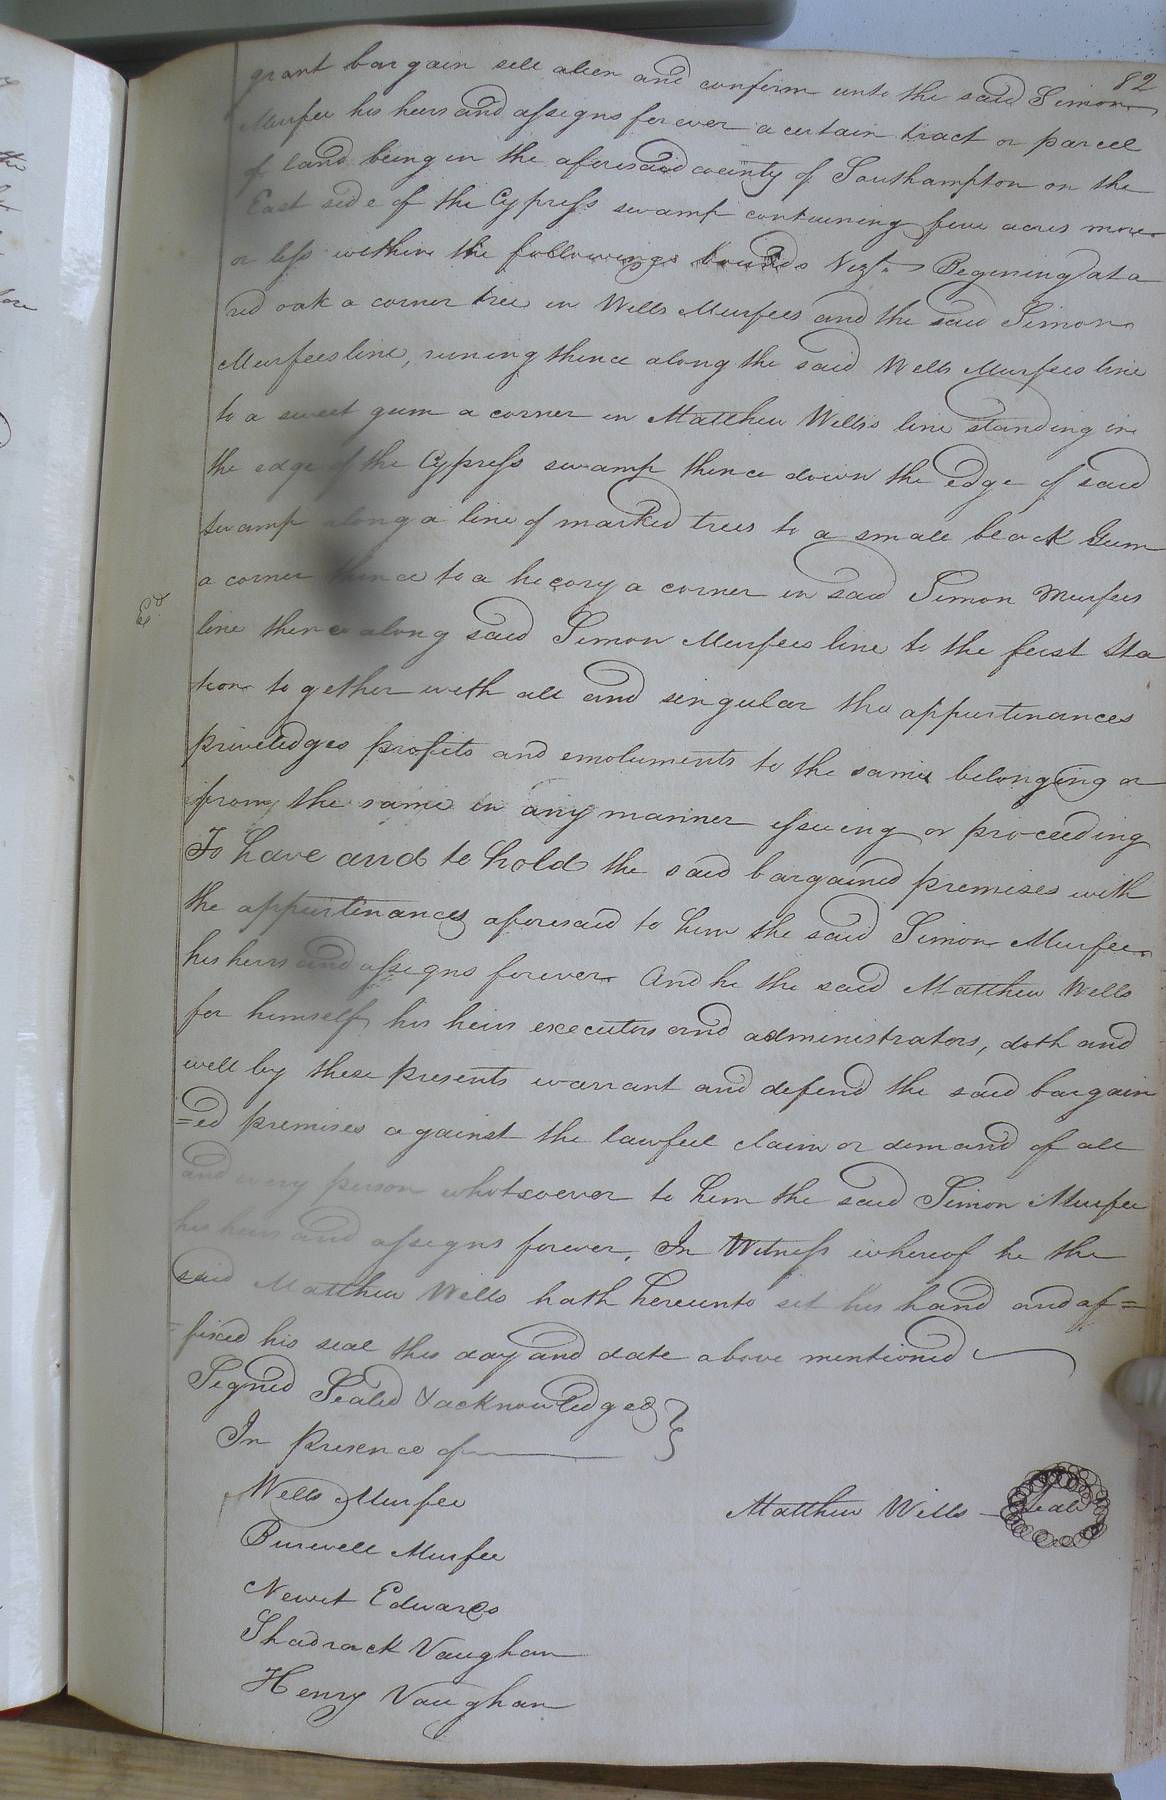 82
grant bargain sell alien and confirm unto the said Simon
Murfee his heirs and assigns for ever a certain tract or parcel
of land being in the aforesaid county of Southampton on the
East side of the Cypress swamp containing five acres more
or less within the following bounds Vizt. Begening at a
red oak a corner tree in Wells Murfees and the said Simon
Murfees line, runing thence along the said Wells Murfees line
to a sweet gum a corner in Matthew Wells's line standing in
the edge of the Cypress swamp thence down the edge of said
swamp along a line of marked trees to a small black Gum
a corner thence to a hecory a corner in said Simon Murfees
line thence along said Simon Murfees line to the first Sta
tion together with all and singular the appurtinances
priveledges profits and emoluments to the same belonging or
from the same in any manner issuing or proceeding
To have and to hold the said bargained premises with
the appurtinances aforesaid to him the said Simon Murfee
his heirs and assigns forever And he the said Matthew Wells
for himself his heirs executors and administrators, doth and
will by these presents warrant and defend the said bargain
=ed premises against the lawfull claim or demand of all
and every person whotsoever to him the said Simon Murfee
his heirs and assigns forever. In Witness whereof he the
said Matthew Wells hath hereunto set his hand and af=
=fixed his seal this day and date above mentioned
Signed Sealed & acknowledged }
In presence of
Wells Murfee
Matthew Wells Seal
Burwell Murfee
Newit Edwards
Shadrack Vaughan
Henry Vaughan